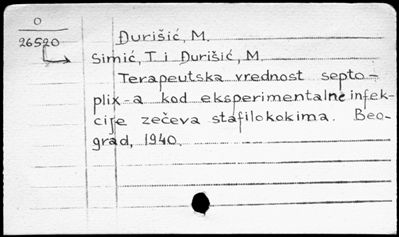 O
26520
Đurišić, M.
Simić, T. i Đurišić, M.
Terapeutska vrednost septo-
plix-a kod eksperimentalne infek-
cije zečeva stafilokokima. Beo-
grad, 1940.